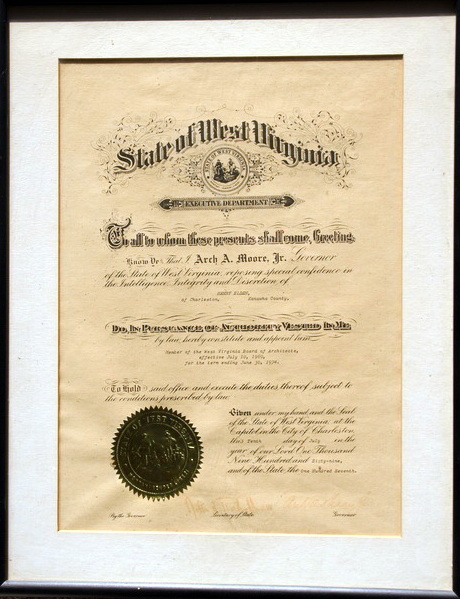 State of West Virginia
EXECUTIVE DEPARTMENT
To all to whom these presents shall come, Greeting
Know Ye That I Arch A. Moore, Jr. Governor
of the State of West Virginia, reposing special confidence in
the Intelligence, Integrity and Discretion of
of Charleston, Kanawha County,
DO, IN PURSUANCE OF AUTHORITY VESTED IN ME
by law, hereby constitute and appoint him
Member of the West Virginia Board of Architects,
effective July 10, 1969,
for the term ending June 30,
To Hold said office and execute the duties thereof, subject to
the conditions prescribed by law.
Given under my hand and the Seal
of the State of West Virginia, at the
Capitol, in the City of Charleston,
this day of July in the
year of our Lord One Thousand
Nine Hundred and Sixty-nine,
and of the State the One Hundred Seventh.
By the Governor
Secretary of State
Governor